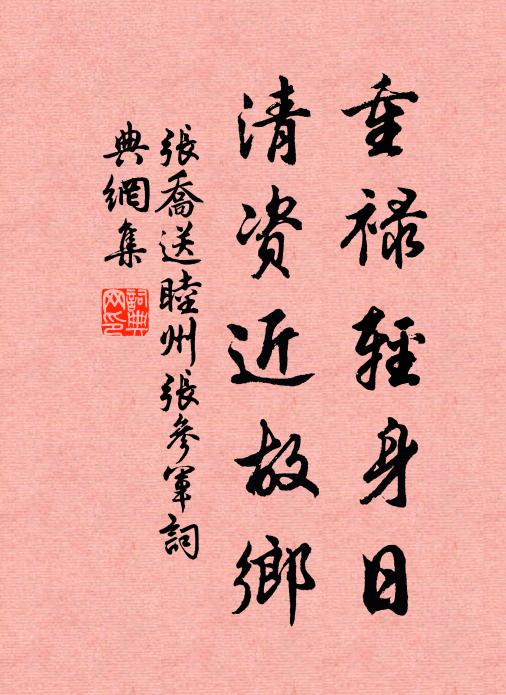 重禄輕身日
清资近故鄉
張喬送睦州張參軍詞
典網集
詞典網印